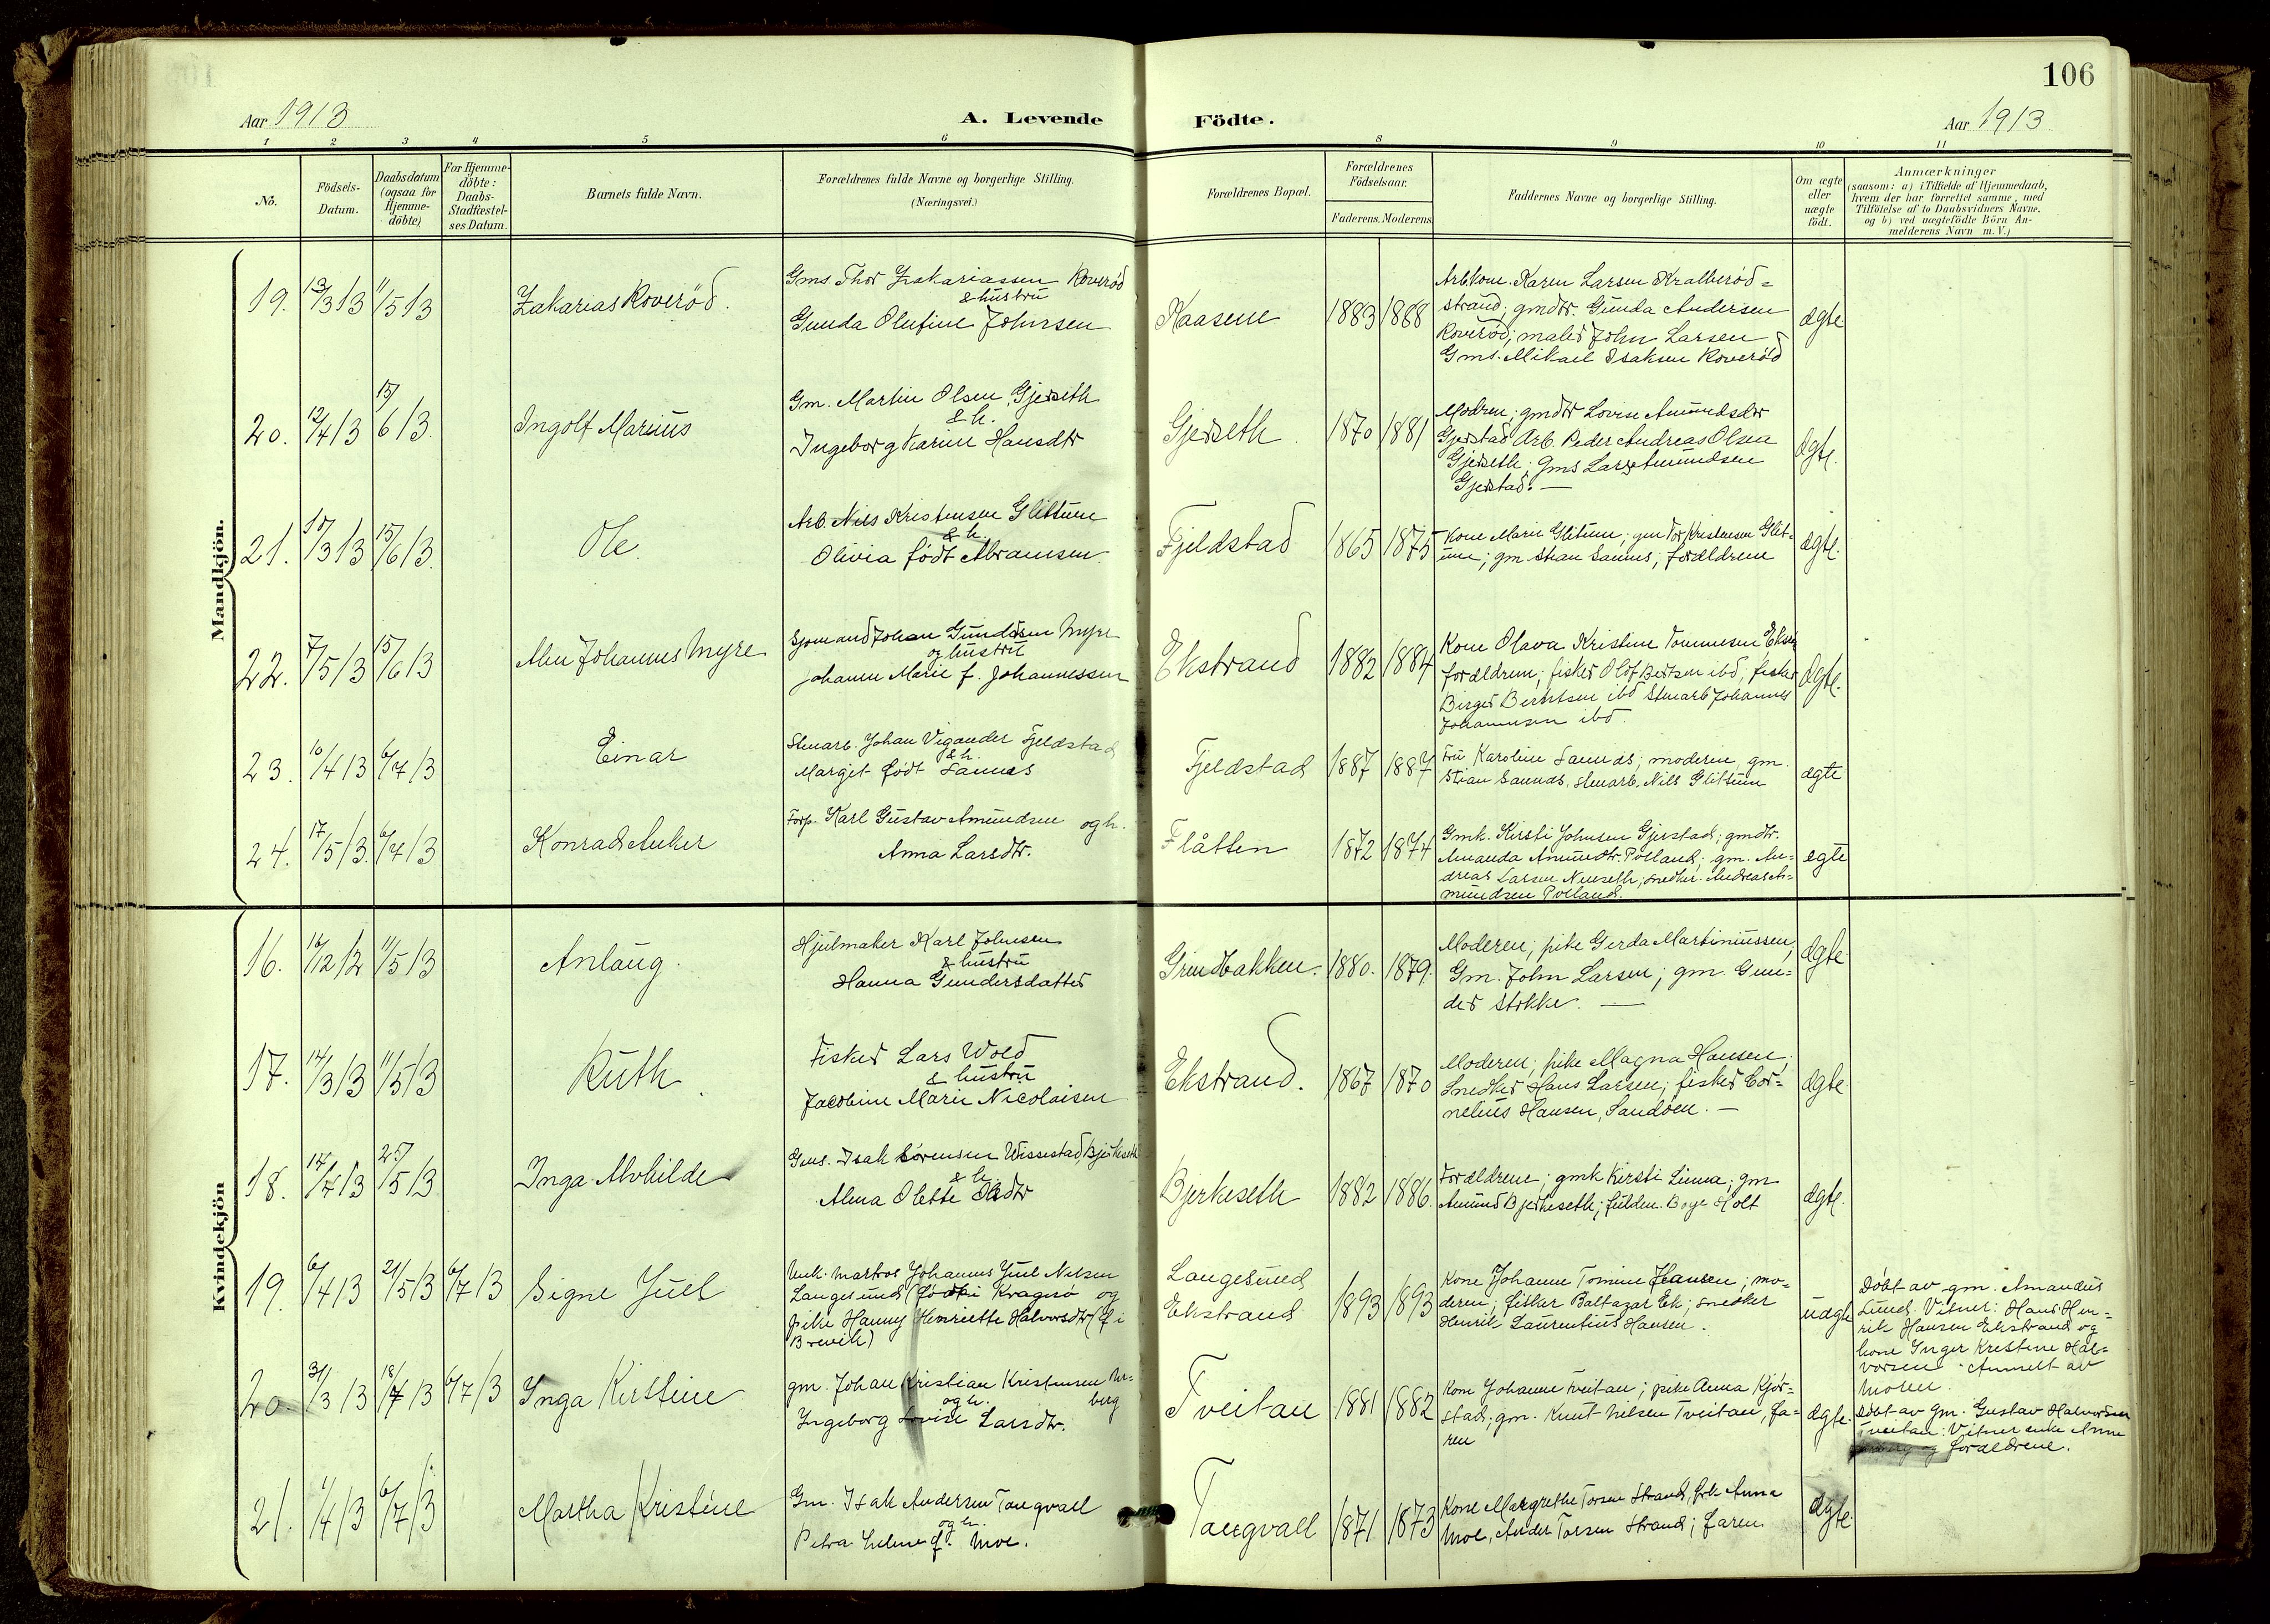 106
Aar 1913
A. Levende
Födte.
Aar 1913
1 2 3 4 5 6 8 9 10 11
No.
Födsels-
Datum.
Daabsdatum
(ogsaa for
Hjemme-
döbte)
For Hjemme-
döbte:
Daabs-
Stadfæstel-
ses Datum.
Barnets fulde Navn.
Forældrenes fulde Navne og borgerlige Stilling.
(Næringsvei.)
Forældrenes Bopæl.
Forældrenes
Födselsaar.
Faderens. Moderens
Faddernes Navne og borgerlige Stilling.
Om ægte
eller
uægte
födt.
Anmærkninger
(saasom: a) i Tilfælde af Hjemmedaab,
hvem der har forrettet samme, med
Tilföielse af to Daabsvidners Navne,
og b) ved uægtefödte Börn An-
melderens Navn m. V.)
Mandkjön.
19. 13/3 13 11/5 13
Zakarias Roverød.
Gms. Thor Zakariassen Roverød
& hustru
Gunda Olufine Johnsen
Kaasene
1883 1888
Arb.kone. Karen Larsen Kralberød=
strand; gmdtr. Gunda Andersen
Roverød; maler John Larsen
Gms. Mikael Isaksen Roverød
ægte
20. 12/4 13 15/6 13
Ingolf Marius
Gm. Martin Olsen, Gjerseth
& h.
Ingeborg Karine Hansdtr
Gjerseth
1870 1881
Modren; gmdtr Lovise Amundsdtr
Gjerstad Arb. Peder Andreas Olsen
Gjerseth; Gms Lars Amundsen
Gjerstad. —
Ægte.
21. 10/3 13 15/6 13.
Ole.
Arb. Nils Kristensen Glittum
& h.
Olivia født Abramsen.
Fjeldstad
1865 1875
Kone Marie Glitum; gm Tor Kristensen Glit-
um; gm Stian Sannes; forældrene
ægte.
22. 7/5 13 15/6 13
Alm Johannes Myre
Sjømand Johan Gundersen Myre
og hustru
Johanne Marie f. Johannessen
Ekstrand
1882 1884
Kone Olava Kristine Tommesen, Ekstr.
forældrene; fisker Olof Berntsen ibd, fisker
Birger Berntsen ibd Stenarb Johannes
Johannesen ibd.
Ægte.
23. 10/4 13 6/7 13
Einar
Stenarb. Johan Vigander Fjeldstad
& h.
Margit født Sannes
Fjeldstad
1887 1887
Fru Karoline Sannes; moderen, gm.
Stian Sannes, stenarb. Nils Glittum
ægte
24. 17/5 13. 6/7 13
Konrad Anker
Forp. Karl Gustav Amundsen og h.
Anna Larsdtr.
Flåtten
1872 1874
Gmk. Kirsti Johnsen Gjerstad; gmdtr.
Amanda Amundtr. Polland; gm. An=
dreas Larsen Nenseth; snedker. Andreas A=
mundsen Polland.
ægte
Kvindekjön
16. 16/12 12 11/5 13
Anlaug.
Hjulmaker Karl Johnsen
& hustru
Hanna Gundersdatter
Grindbakken.
1880. 1879.
Moderen; pike Gerda Martiniussen,
Gm. John Larsen; gm. Gun=
der Stokke. —
Ægte
17. 14/3 13 11/5 13
Ruth.
Fisker Lars Wold
& hustru
Jacobine Marie Nicolaisen
Ekstrand.
1867 1870
Moderen; pike Magna Hansen;
Snedker Hans Larsen; fisker Cor=
nelius Hansen, Sandøen. —
Ægte
18. 14/4 13 25/5 13
Inga Alvhilde
Gms. Isak Sørensen Wissestad, Bjerkeseth
& h.
Alma Olette Oldtr
Bjerkeseth
1882 1886.
Forældrene; gmk Kirsti Linna; gm
Amund Bjerkeseth; fuldm. Boye Holt
ægte.
19. 6/4 13 21/5 13 6/7 13
Signe Juel
Unk. matros Johannes Juel Nilsen
Langesund (født i Kragerø og
pike Hanny Henriette Halvorsdtr (f i
Brevik)
Langesund
Ekstrand
1893 1893
Kone Johanne Tomine Hansen; mo=
deren; fisker Baltazar Ek; snedker
Henrik Laurentius Hansen.
uægte
Døbt av gm. Amandus
Lund. Vitner: Hans Hen=
rik Hansen Ekstrand og
kone Inger Kristine Hal=
vorsen. Anmelt av
moren.
20. 31/3 13 18/4 13 6/7 13
Inga Kirstine
gm. Johan Kristian Kristensen Ur-
berg
og h.
Ingeborg Lovise Larsdtr.
Tveitan
1881 1882
Kone Johanne Tveitan; pike Anna Kjør=
stad; gm. Knut Nilsen Tveitan, fa=
ren
ægte.
Døbt av gm. Gustav Halvorsen
Tveitan: Vitner enke Anne
og forældrene.
21. 1/4 13 6/7 13
Martha Kristine
Gm. Isak Andersen Tangvall
og h.
Petra Helene f. Moe.
Tangvall
1871 1873
Kone Margrethe Torsen Strand, frk Anna
Moe, Ander Torsen Strand; faren
ægte.